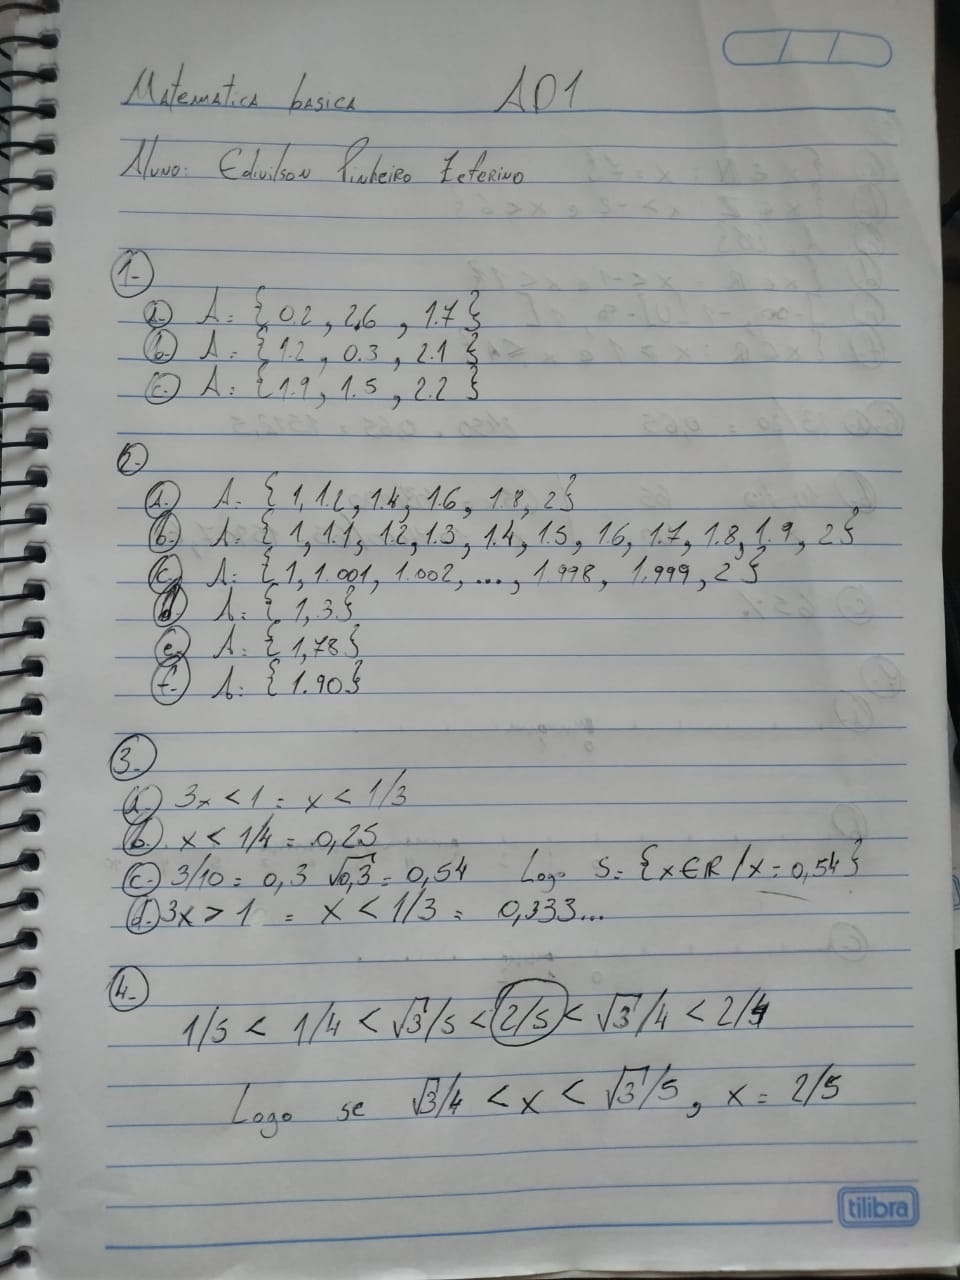 Matematica basica AD1
Aluno: Edivilson Pinheiro Zeferino
1-
a. A = { 0.2 , 2.6 , 1.7 }
b. A = { 1.2 , 0.3 , 2.1 }
c. A = { 1.9 , 1.5 , 2.2 }
2.
a. A = { 1, 1.2 , 1.4 , 1.6 , 1.8 , 2 }
b. A = { 1 , 1.1 , 1.2 , 1.3 , 1.4 , 1.5 , 1.6 , 1.7 , 1.8 , 1.9 , 2 }
c. A = { 1, 1.001, 1.002, ..., 1.998, 1.999, 2 }
d. A = { 1,3 }
e. A = { 1,78 }
f. A = { 1.90 }
3.
a. 3x < 1 = x < 1/3
b. x < 1/4 = 0,25
c. 3/10 = 0,3 √0,3 = 0,54 Logo S = {x ∈ R / x = 0,54}
d. 3x > 1 = x < 1/3 = 0,333...
4.
1/5 < 1/4 < √3/5 < 2/5 < √3/4 < 2/4
Logo se √3/4 < x < √3/5 , x = 2/5
tilibra